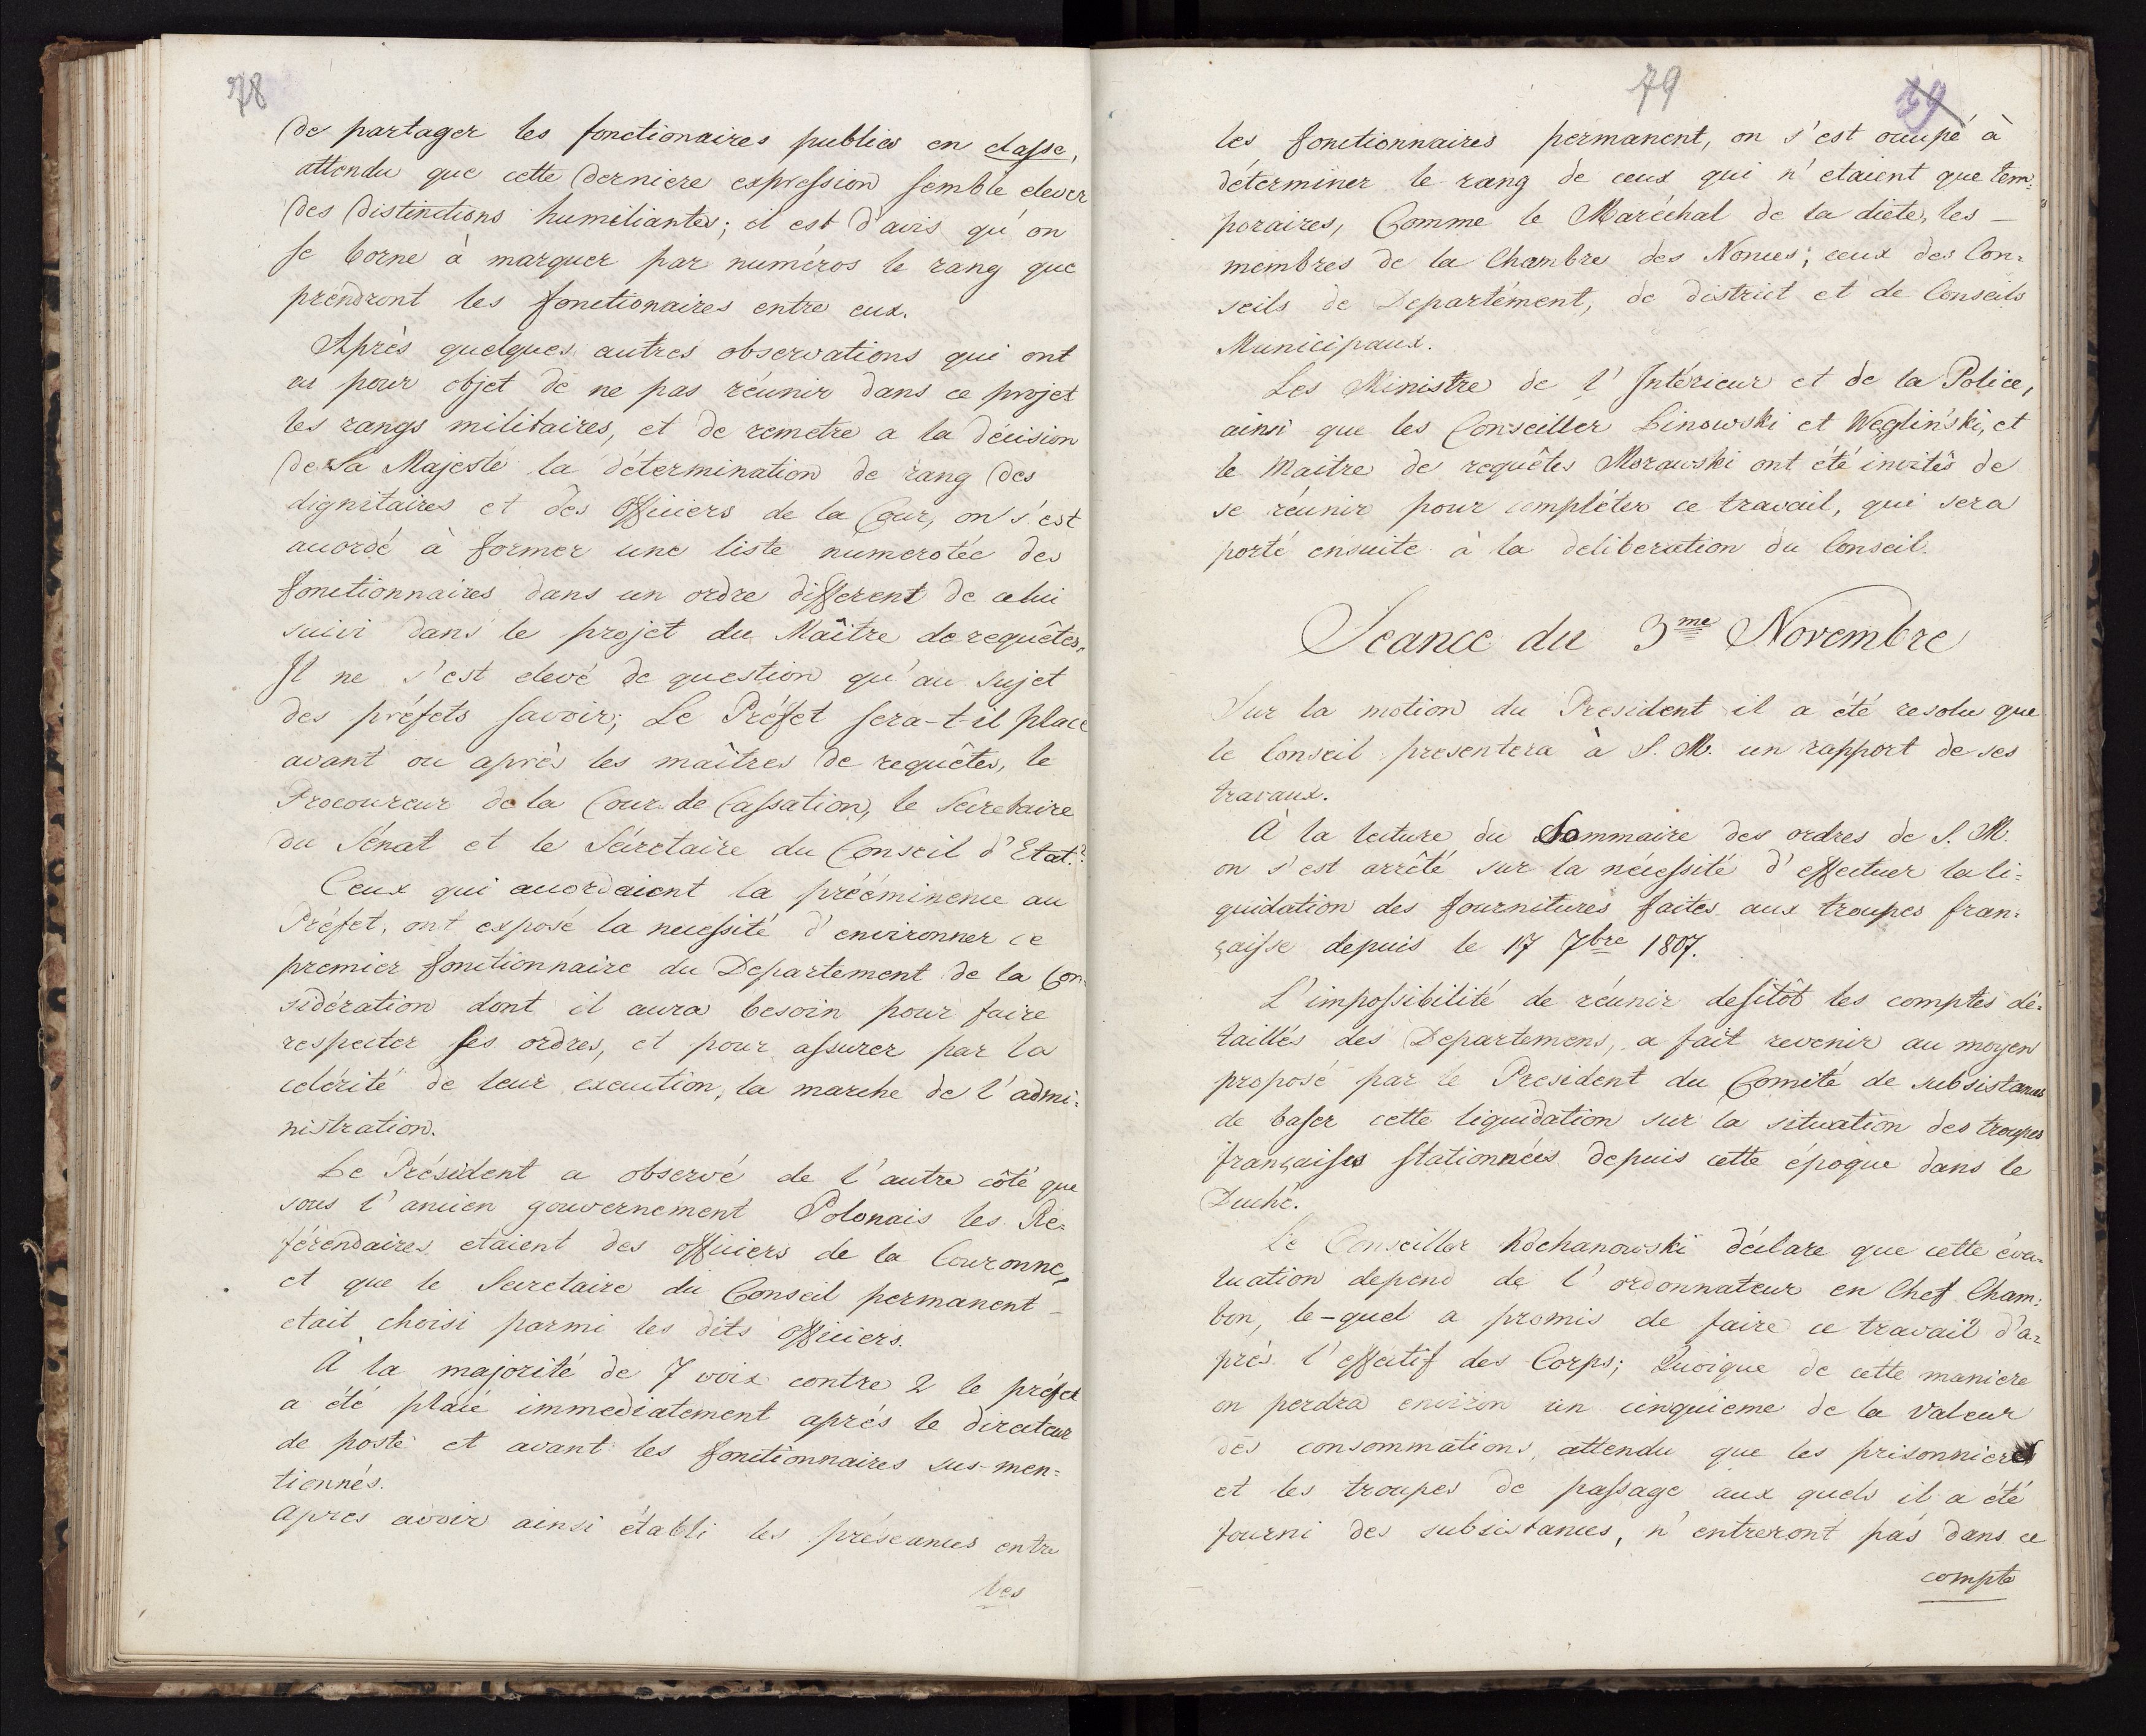 78
de partager les fonctionaires publics en classe,
attendu que cette derniere expression semble elever
des distinctions humiliantes; il est d'avis qu'on
se borne à marquer par numéros le rang que
prendront les fonctionaires entre eux.
Après quelques autres observations qui ont
eu pour objet de ne pas réunir dans ce projet
les rangs militaires, et de remetre a la décision
de Sa Majesté la détermination de rang des
dignitaires et des Officiers de la Cour, on s'est
accordé à former une liste numerotée des
fonctionnaires dans un ordre different de celui
suivi dans le projet du Maître de requêtes.
Il ne s'est elevé de question qu'au sujet
des préfets savoir; Le Préfet sera-t-il place
avant ou après les maîtres de requêtes, le
Procoureur de la Cour de Cassation, le Secretaire
du Sénat et le Sécretaire du Conseil d'Etat?
Ceux qui accordaient la prééminence au
Préfet, ont exposé la necessité d'environner ce
premier fonctionnaire du Departement de la Con-
sidération dont il aura besoin pour faire
respecter ses ordres, et pour assurer par la
celérité de leur execution, la marche de l'admi=
nistration.
Le Président a observé de l'autre côté que
sous l'ancien gouvernement Polonais les Re=
férendaires etaient des officiers de la Couronne,
et que le Secretaire du Conseil permanent
etait choisi parmi les dits officiers.
À la majorité de 7 voix contre 2 le préfet
a été placé immediatement aprés le directeur
de poste et avant les fonctionnaires sus-men=
tionnés.
apres avoir ainsi établi les préseances entre
les
79
les fonctionnaires permanent, on s'est occupé à
déterminer le rang de ceux qui n'etaient que tem=
poraires, Comme le Maréchal de la diete, les
membres de la Chambre des Nonces; ceux des Con=
seils de Departément, de district et de Conseils
Municipaux.
Les Ministre de l'Intérieur et de la Police,
ainsi que les Conseiller Linowski et Węgliński, et
le Maitre de requêtes Morawski ont été invités de
se réunir pour compléter ce travail, qui sera
porté ensuite à la deliberation du Conseil.
Seance du 3me Novembre
Sur la motion du President il a été resolu que
le Conseil presentera à S. M. un rapport de ses
travaux.
À la lecture du Sommaire des ordres de S. M.
on s'est arrêté sur la nécessité d'effectuer la li=
quidation des fournitures faites aux troupes fran=
çaisse depuis le 17 7bre 1807.
L'impossibilité de réunir desitôt les comptes dé=
taillés des Departemens, a fait revenir au moyen
proposé par le President du Comité de subsistances
de baser cette liquidation sur la situation des troupes
françaises stationnées depuis cette époque dans le
Duché.
Le Conseiller Kochanowski déclare que cette éva=
luation depend de l'ordonnateur en Chef Cham=
bon, le-quel a promis de faire ce travail d'a=
près l'effectif des Corps; Quoique de cette maniere
on perdra environ un cinquieme de la valeur
des consommations, attendu que les prisonnieres
et les troupes de passage aux quels il a été
fourni des subsistances, n'entreront pas dans ce
compte